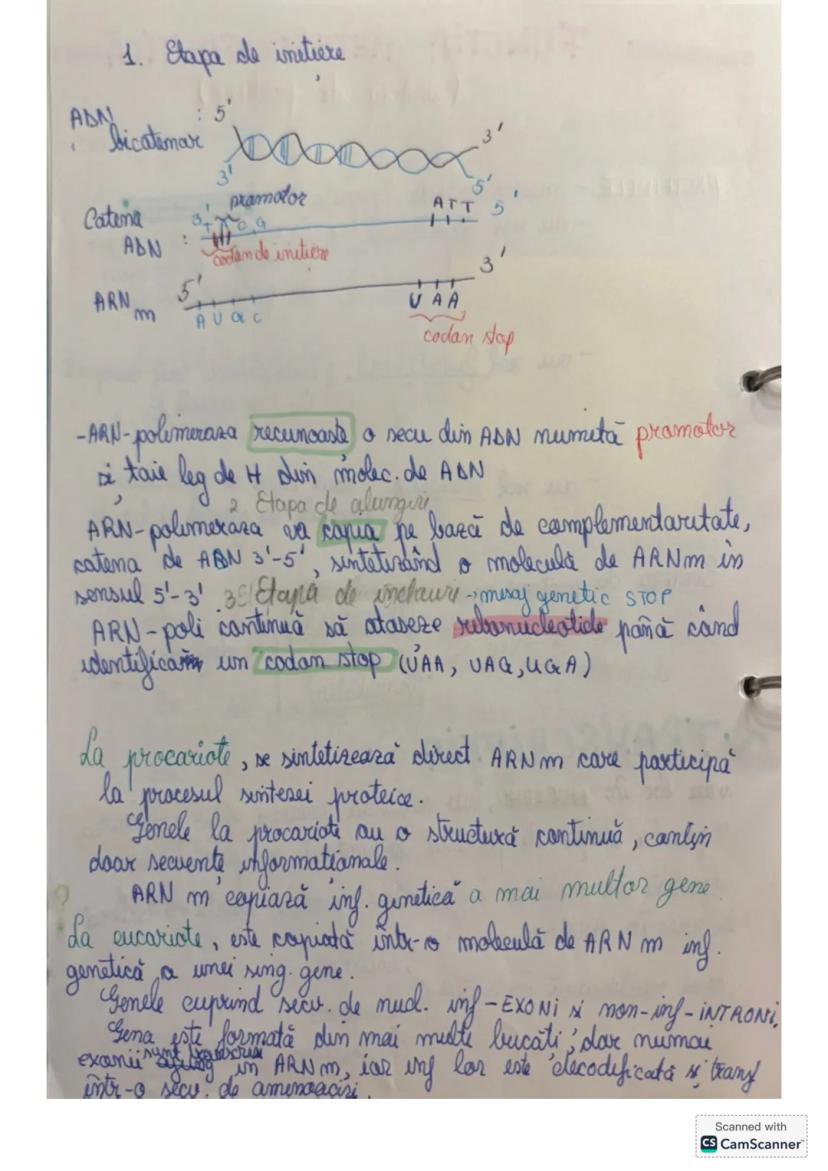 1. Etapa de inițiere
ADN : 5'
bicatenar 3'
3' 5'
promotor
Catena 3' T A C G A T T 5'
ADN : codon de inițiere
ARN m 5' 3'
A U G C U A A
codon stop
-ARN-polimeraza recunoaste o secv din ADN numită promotor
și taie leg de H din molec. de ADN
2 Etapa de alungiri
ARN-polimeraza va copia pe bază de complementaritate,
catena de ADN 3'-5', sintetizând o moleculă de ARNm in
sensul 5'-3'. 3 Etapa de incheuri - mesaj genetic STOP
ARN-poli continuă să ataseze ribonucleotide până când
identifică un codon stop (UAA, UAG, UGA)
La procariote, se sintetizează direct ARNm care participă
la procesul sintezei proteice.
Genele la procariote au o structură continuă, conțin
doar secvente informationale.
ARN m copiază inf. genetică a mai multor gene
? La eucariote, este copiată într-o moleculă de ARNm inf.
genetică a unei sing. gene.
Genele cuprind secv. de nucl. inf-EXONI si non-inf-INTRONI.
Gena este formată din mai multe bucăti, dar numai
exonii sunt in ARNm, iar inf lor este decodificată și transf
într-o secv. de aminoacizi.
Scanned with
CS CamScanner